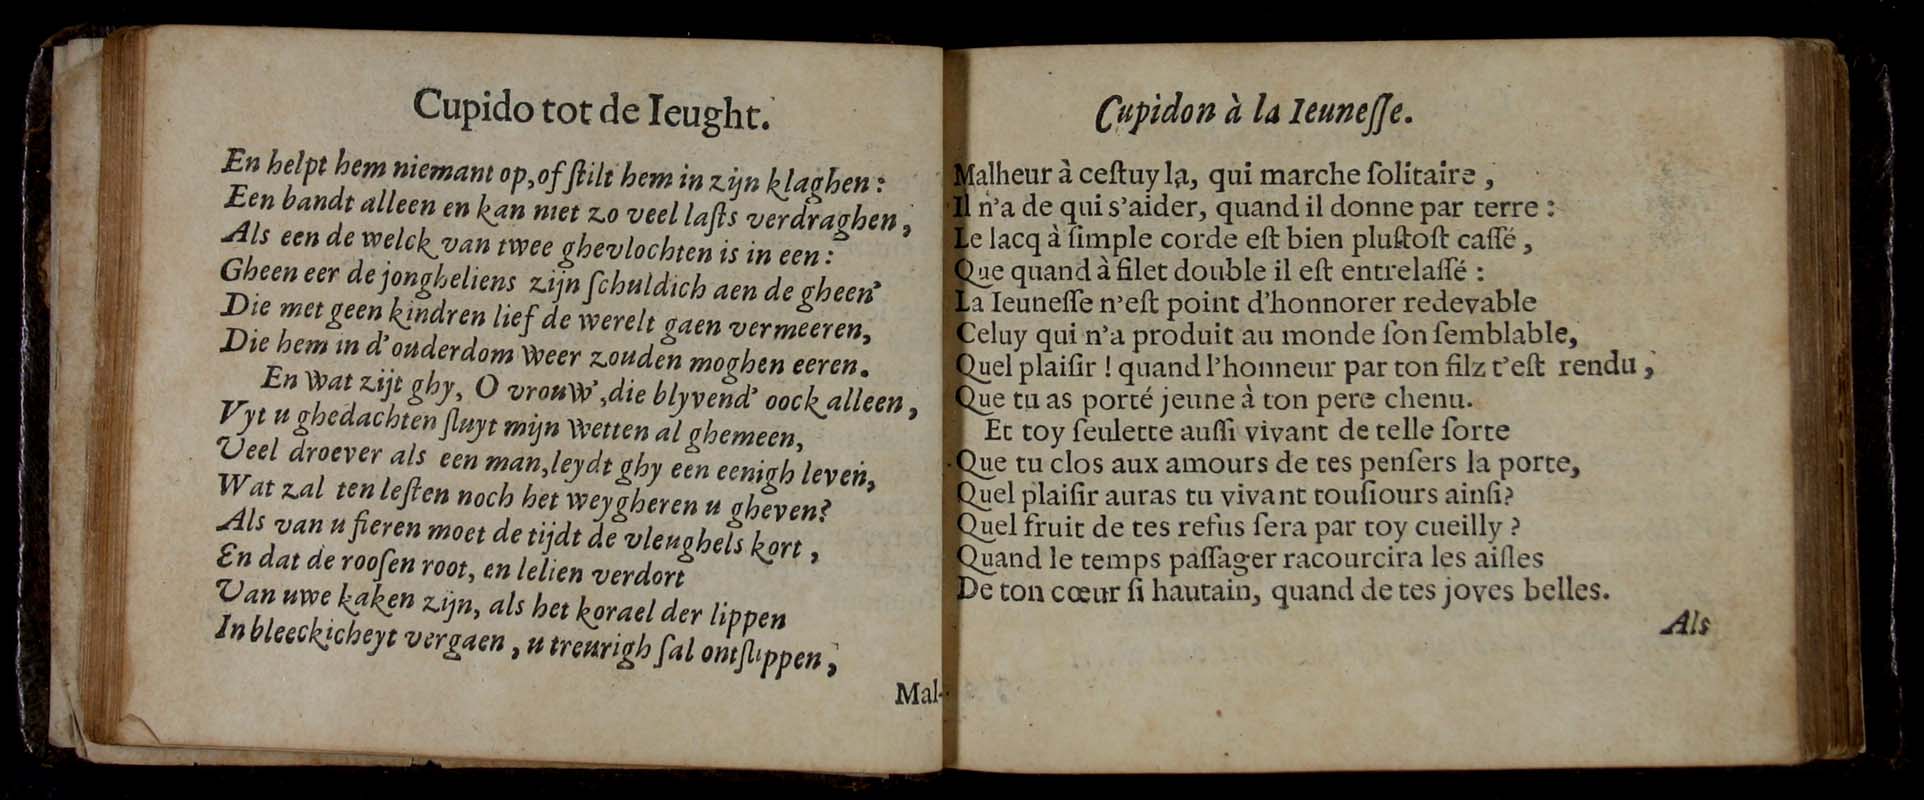 Cupido tot de Ieught.
En helpt hem niemant op, of ſtilt hem in zijn klaghen:
Een bandt alleen en kan niet zo veel laſts verdraghen,
Als een de welck van twee ghevlochten is in een:
Gheen eer de jongheliens zijn ſchuldich aen de gheen'
Die met geen kindren lief de werelt gaen vermeeren,
Die hem in d'ouderdom weer zouden moghen eeren.
En wat zijt ghy, O vrouw', die blyvend' oock alleen,
Vyt u ghedachten ſluyt mijn wetten al ghemeen,
Veel droever als een man, leydt ghy een eenigh leven,
Wat zal ten leſten noch het weygheren u gheven?
Als van u fieren moet de tijdt de vleughels kort,
En dat de rooſen root, en lelien verdort
Van uwe kaken zijn, als het korael der lippen
In bleeckicheyt vergaen, u treurigh ſal ontſlippen,
Mal-
Cupidon à la Ieuneſſe.
Malheur à ceſtuy la, qui marche ſolitaire,
Il n'a de qui s'aider, quand il donne par terre:
Le lacq à ſimple corde eſt bien pluſtoſt caſſé,
Que quand à filet double il eſt entrelaſſé:
La Ieuneſſe n'eſt point d'honnorer redevable
Celuy qui n'a produit au monde ſon ſemblable,
Quel plaiſir! quand l'honneur par ton filz t'eſt rendu,
Que tu as porté jeune à ton pere chenu.
Et toy ſeulette auſſi vivant de telle ſorte
Que tu clos aux amours de tes penſers la porte,
Quel plaiſir auras tu vivant touſiours ainſi?
Quel fruit de tes refus ſera par toy cueilly?
Quand le temps paſſager racourcira les aiſles
De ton cœur ſi hautain, quand de tes joves belles.
Als